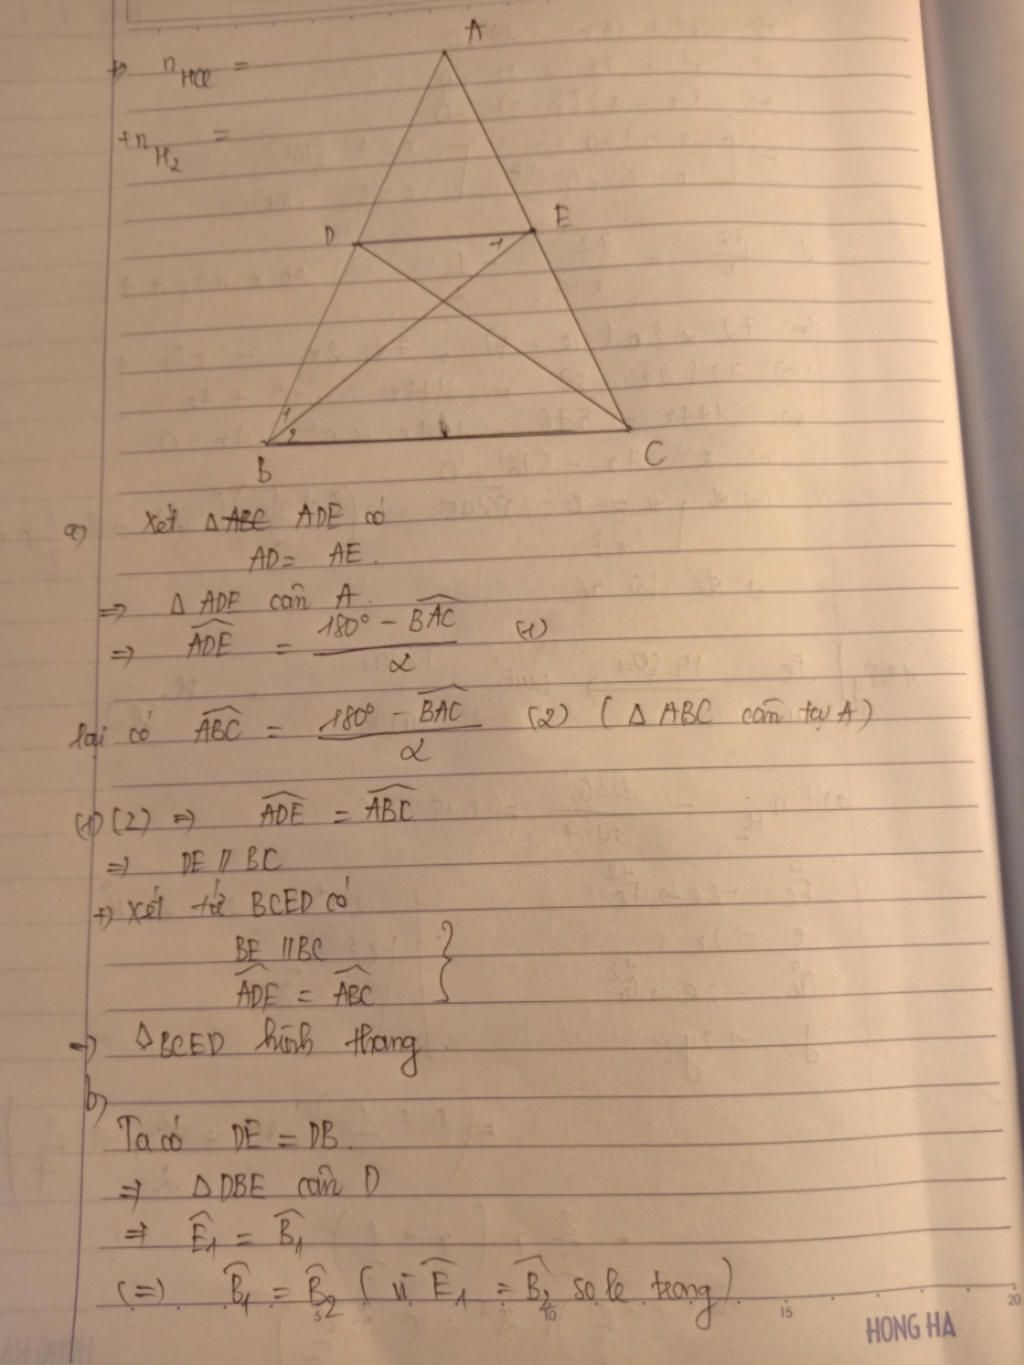 +) nHCl =
+ nH2 =
A
D
E
1
1
2
B
C
a) Xét Δ ABC ADE có
AD = AE.
=> Δ ADE cân A.
=> ADE = (180° - BAC)/2 (1)
lại có ABC = (180° - BAC)/2 (2) (Δ ABC cân tại A)
(1) (2) => ADE = ABC
=> DE // BC
+) Xét tứ BCED có
BE // BC }
ADE = ABC
=> Δ BCED hình thang
b)
Ta có DE = DB.
=> Δ DBE cân D
=> E1 = B1
(=) B1 = B2 (vì E1 = B2 so le trong)
5 10 15 20
HONG HA